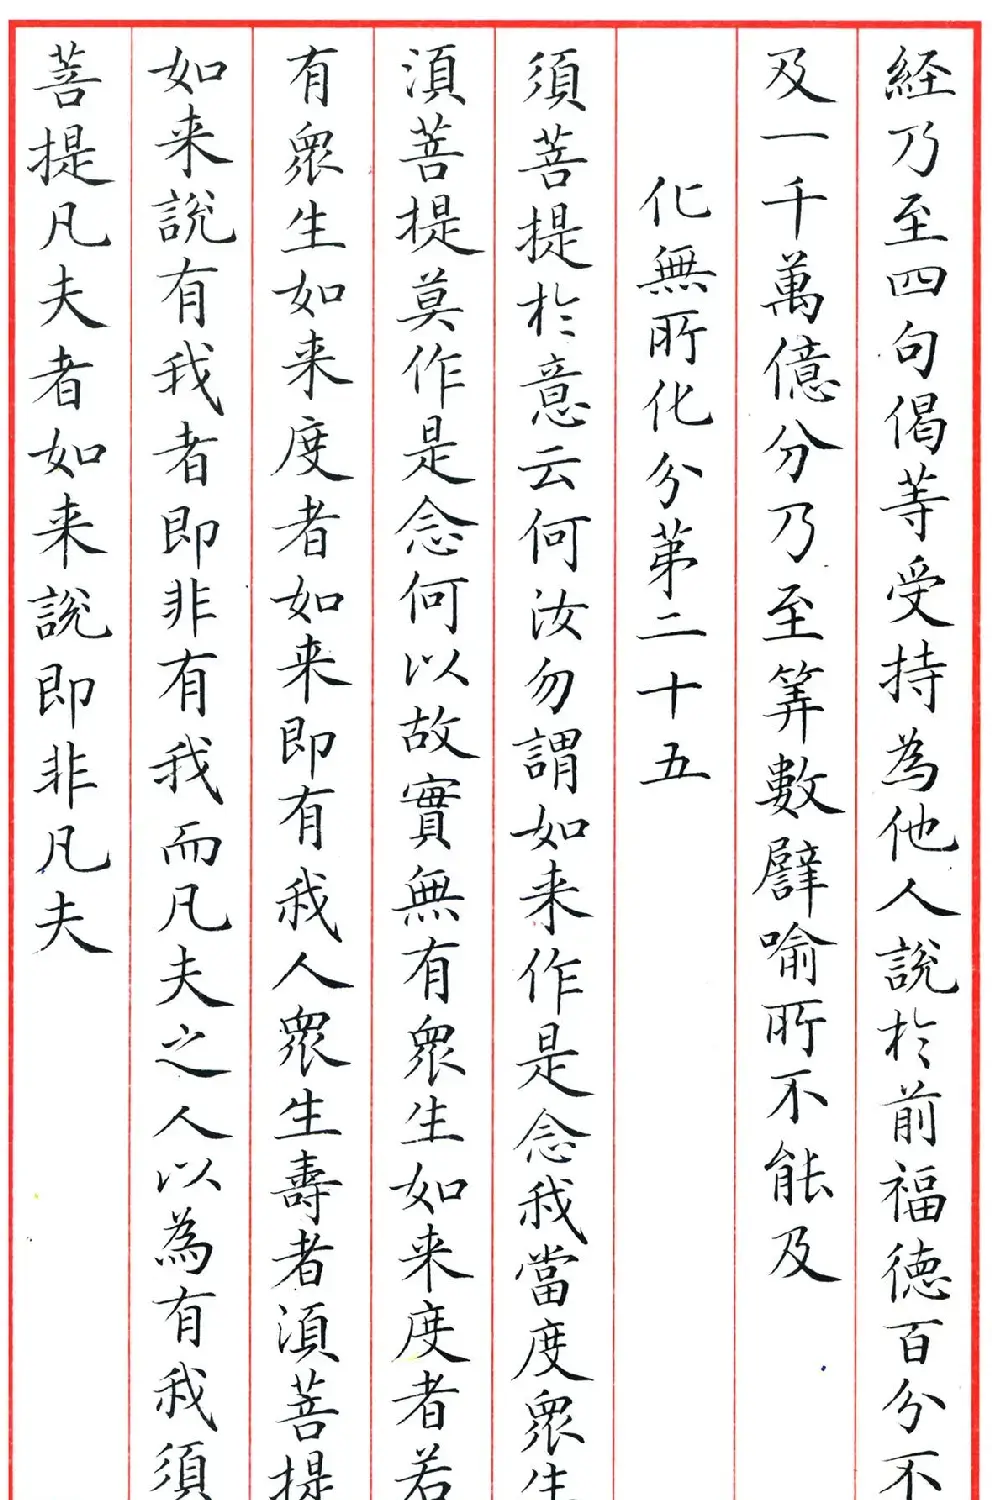 経乃至四句偈等受持為他人說於前福德百分不
及一千萬億分乃至筭數譬喻所不能及
化無所化分第二十五
須菩提於意云何汝勿謂如来作是念我當度眾生
湏菩提莫作是念何以故實無有眾生如来度者若
有眾生如来度者如来即有我人眾生壽者湏菩提
如来說有我者即非有我而凡夫之人以為有我須
菩提凡夫者如来說即非凡夫